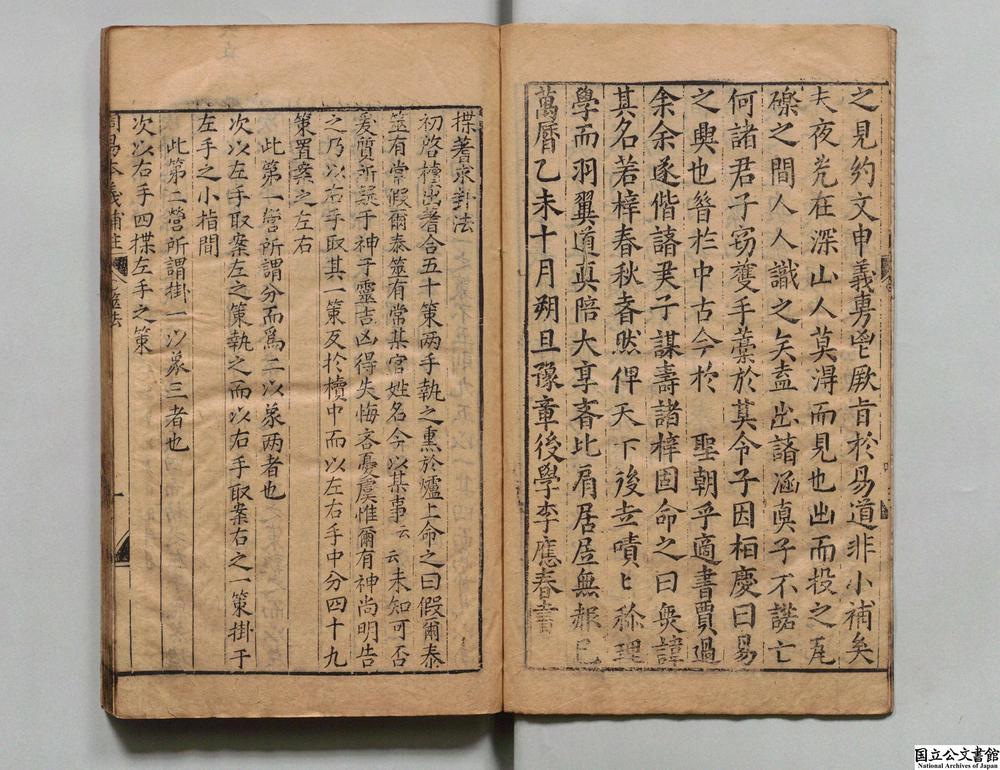 之見約文申義專鬯厥肯於易道非小補矣
夫夜光在深山人莫淂而見也出而投之瓦
礫之間人人識之矣盍出諸涵真子不諾亡
何諸君子窃䨥手藁於其令子因相慶曰易
之興也昝於中古今於　聖朝乎適書賈過
余余遂偕諸君子謀壽諸梓固命之曰奭諱
其名若梓春秋春然俾天下後世嘖ヒ称理
學而羽翼道真陪大享者比肩居居無赧已
萬曆乙未十月朔旦豫章後學李應春書
揲蓍求卦法
初啓櫝出蓍合五十策两手執之熏於爐上命之曰假爾泰
筮有常假爾泰筮有常某官姓名今以某事云云未知可否
爰質所疑于神于靈吉凶得失悔吝憂虞惟爾有神尚明告
之乃以右手取其一策反於櫝中而以左右手中分四十九
策置案之左右
此第一營所謂分而爲二以象两者也
次以左手取案左之策執之而以右手取案右之一策掛于
左手之小指間
此第二營所謂掛一以象三者也
次以右手四揲左手之策
周易本義補註
筮法
一
国立公文書館
National Archives of Japan